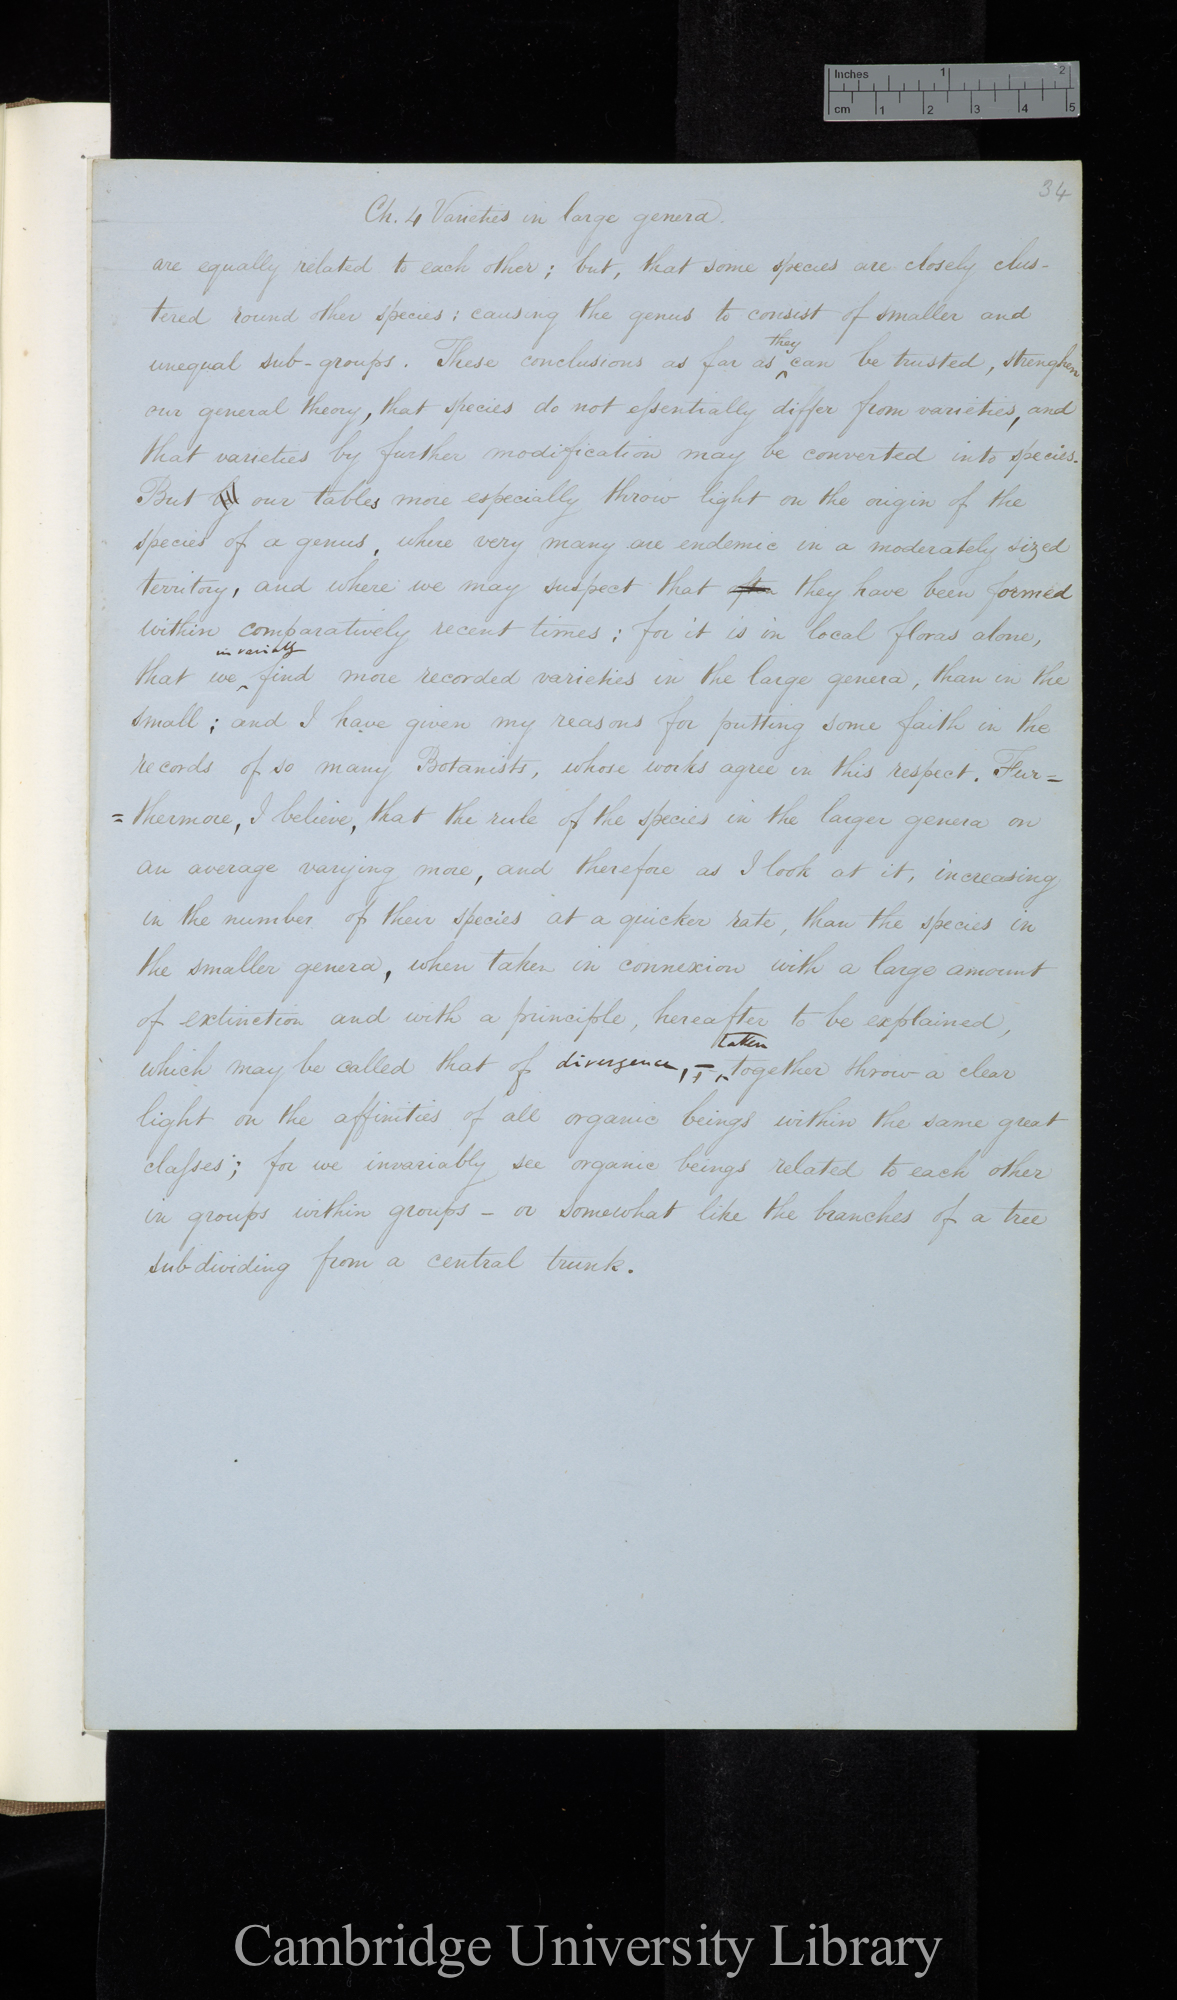 Inches 1 2
cm 1 2 3 4 5
34
Ch. 4 Varieties in large genera.
are equally related to each other; but, that some species are closely clus-
tered round other species; causing the genus to consist of smaller and
they
unequal sub-groups. These conclusions as far as ‸ can be trusted, strenghen
our general theory, that species do not essentially differ from varieties, and
that varieties by further modification may be converted into species.
But our tables more especially throw light on the origin of the
species of a genus, where very many are endemic in a moderately sized
territory, and where we may suspect that they have been formed
within comparatively recent times; for it is in local floras alone,
invariably
that we ‸ find more recorded varieties in the large genera, than in the
small; and I have given my reasons for putting some faith in the
records of so many Botanists, whose works agree in this respect. Fur=
=thermore, I believe, that the rule of the species in the larger genera on
an average varying more, and therefore as I look at it, increasing
in the number of their species at a quicker rate, than the species in
the smaller genera, when taken in connexion with a large amount
of extinction and with a principle, hereafter to be explained,
taken
which may be called that of divergence, ‸ together throw a clear
light on the affinities of all organic beings within the same great
classes; for we invariably see organic beings related to each other
in groups within groups – or somewhat like the branches of a tree
sub-dividing from a central trunk.
Cambridge University Library